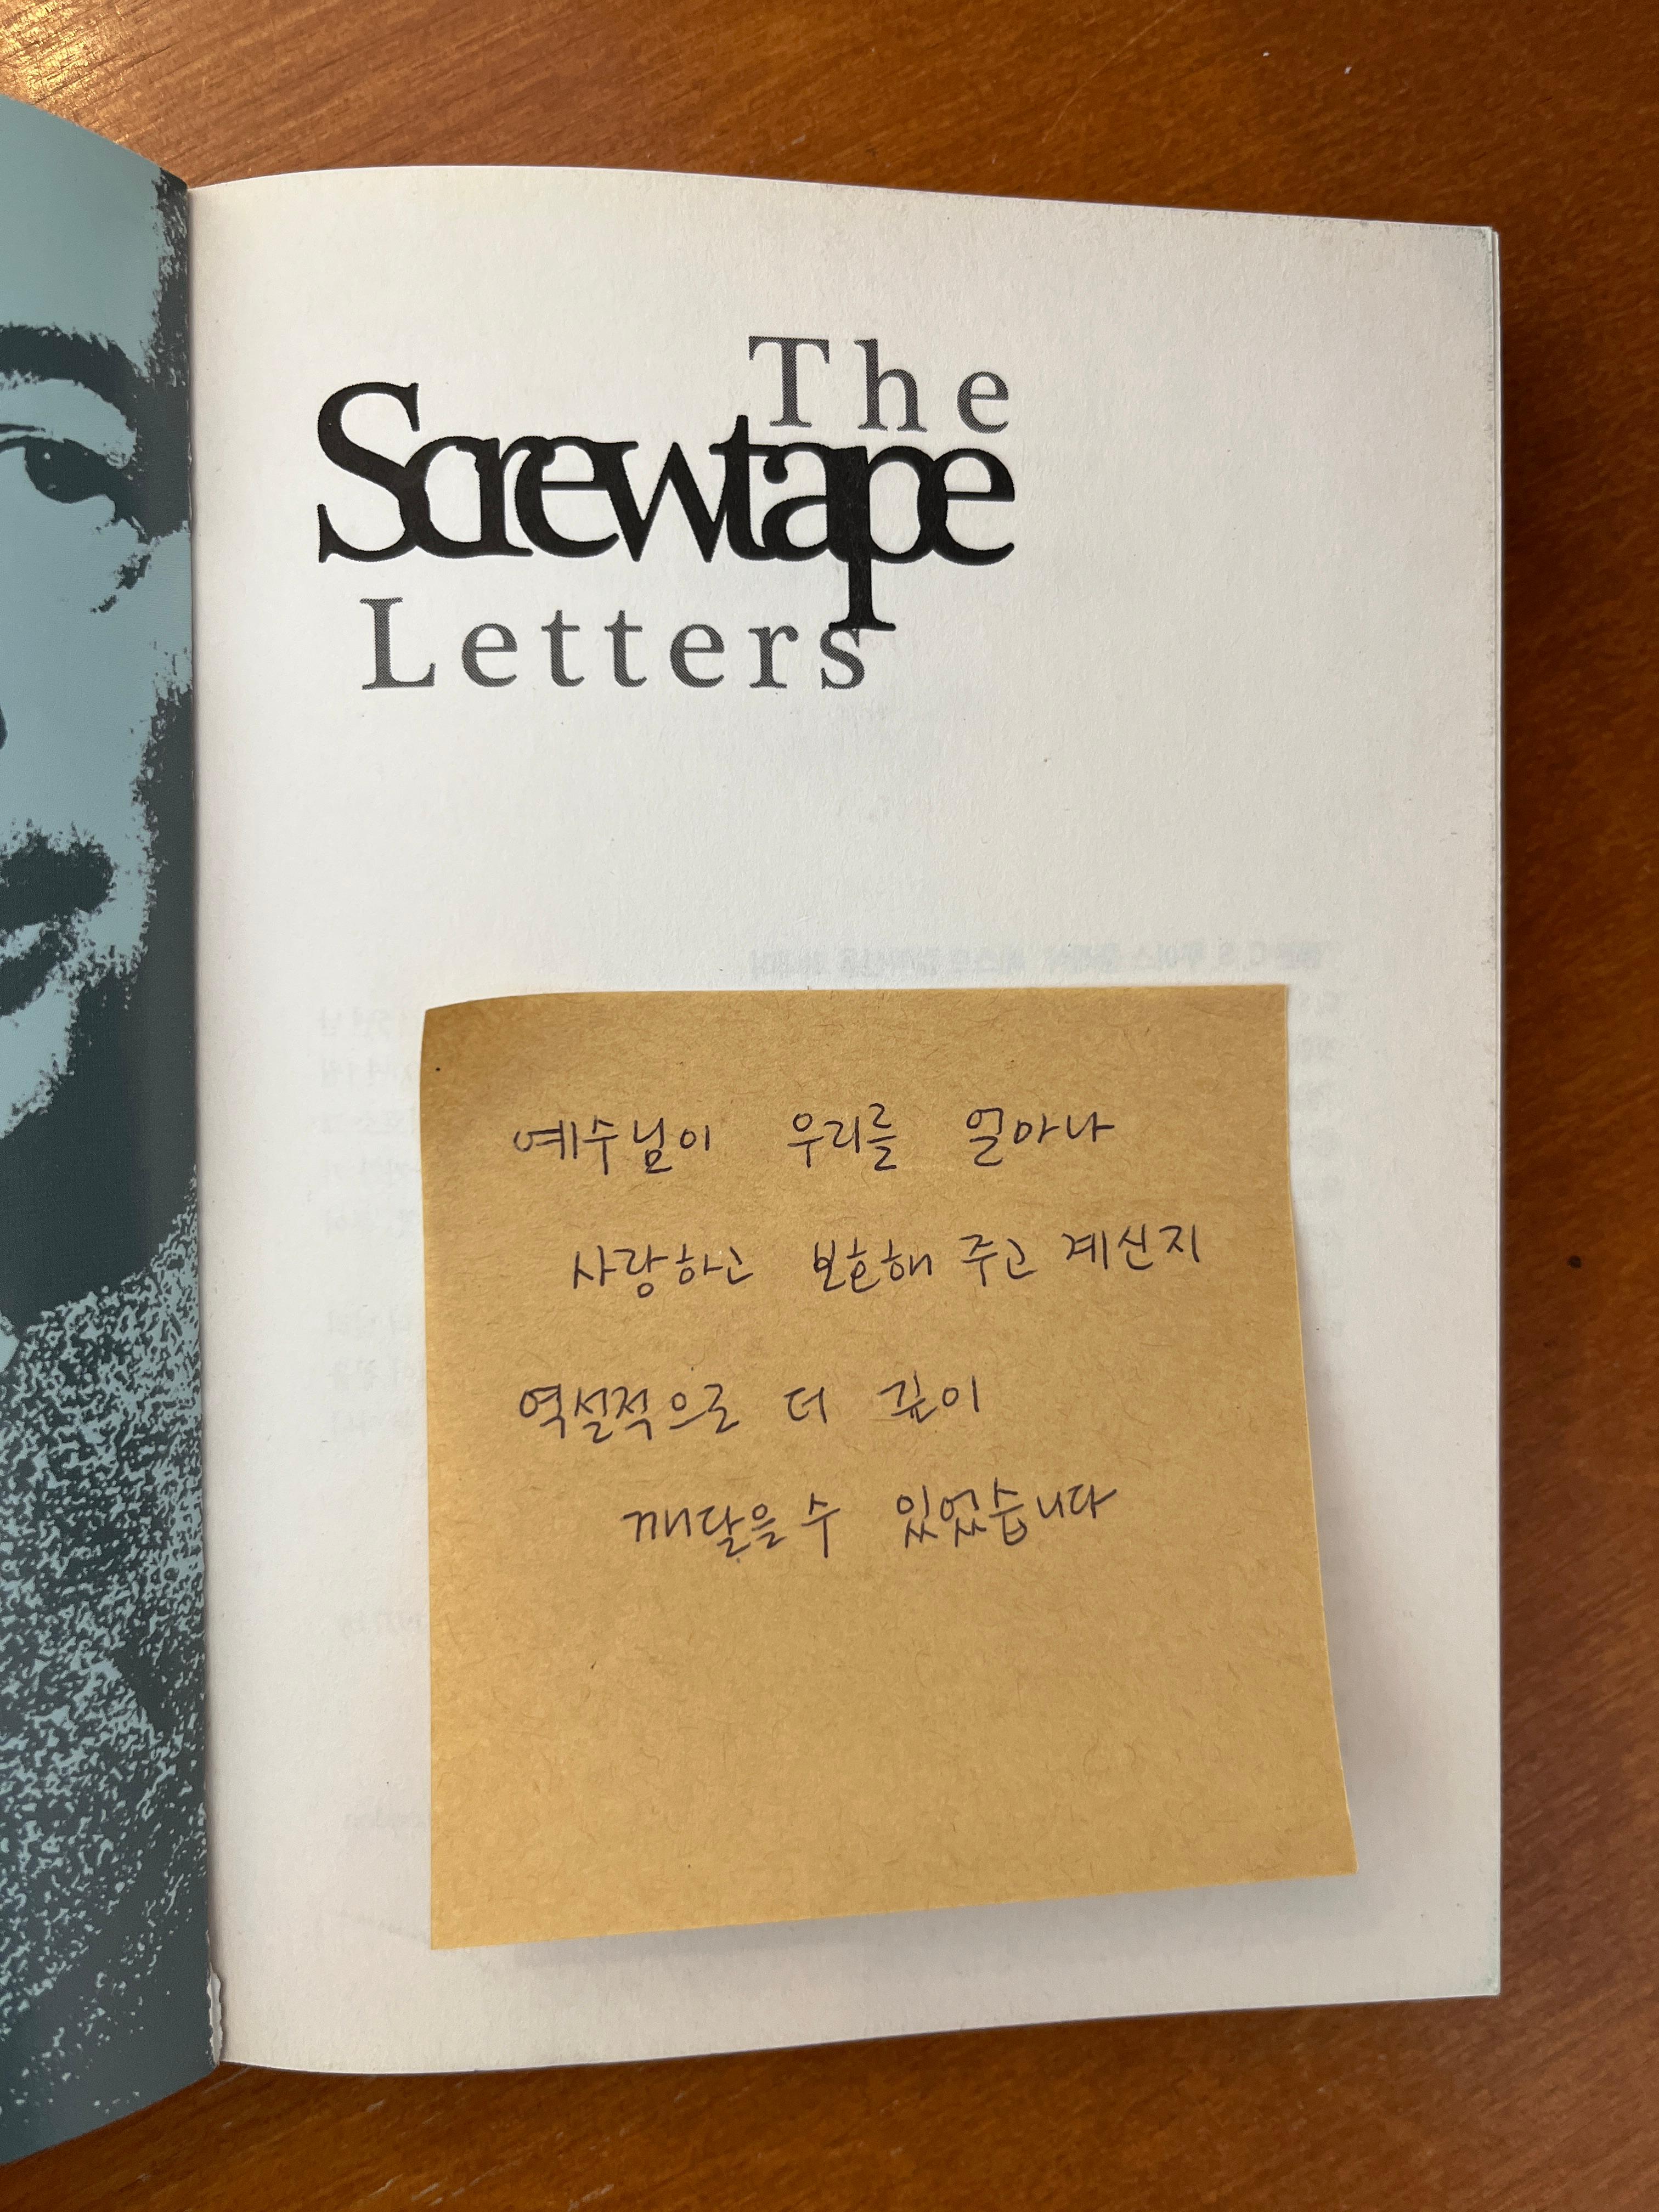 The
Screwtape
Letters
예수님이 우리를 얼마나
사랑하고 보호해 주고 계신지
역설적으로 더 깊이
깨달을 수 있었습니다